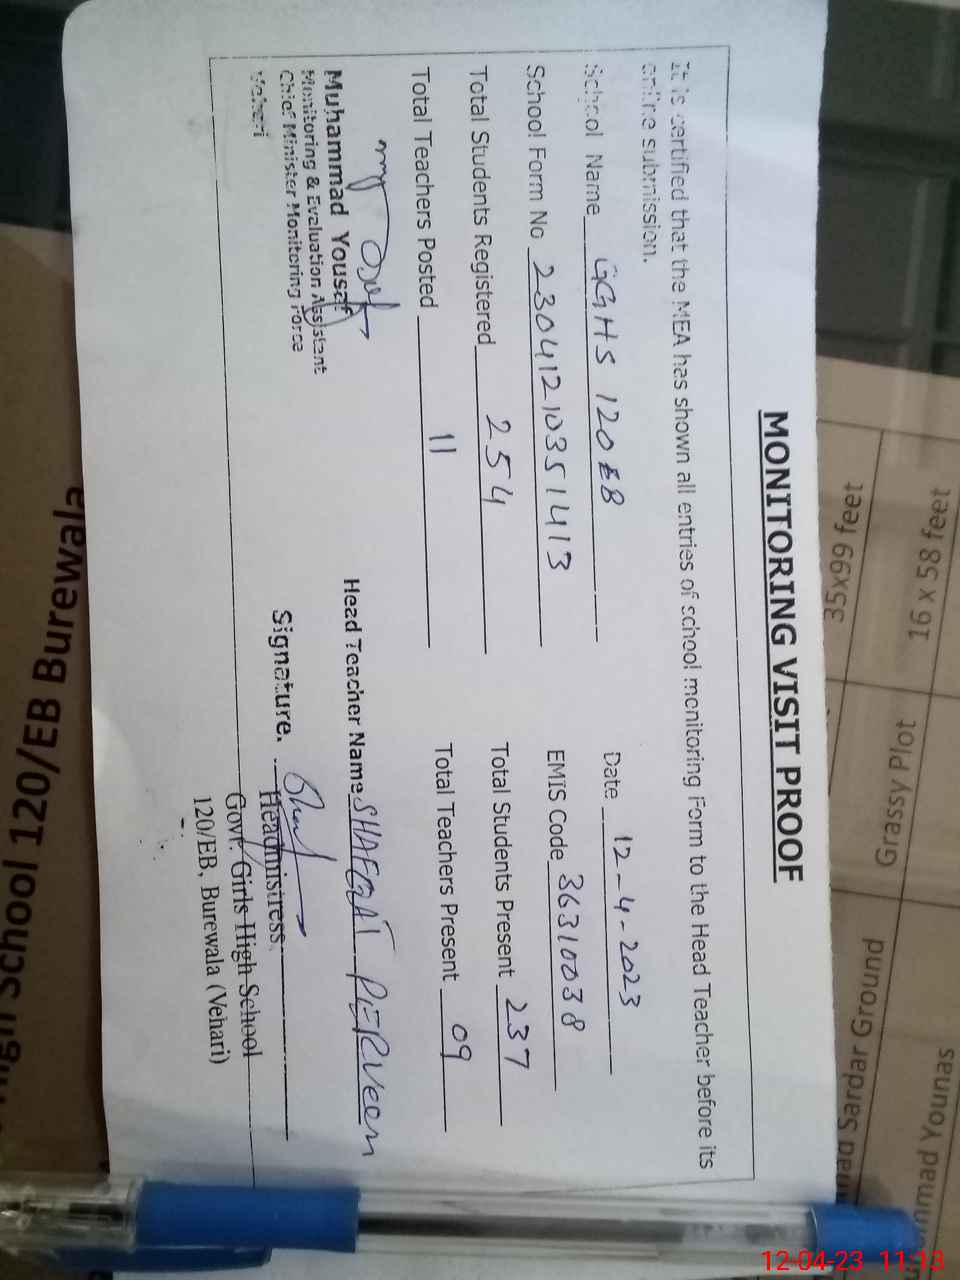 MONITORING VISIT PROOF
It is certified that the MEA has shown all entries of school monitoring Form to the Head Teacher before its
online submission.
School Name GGHS 120 EB Date 12-4-2023
School Form No 2304121035 1413 EMIS Code 36310038
Total Students Registered 254 Total Students Present 237
Total Teachers Posted 11 Total Teachers Present 09
Muhammad Yousaf
Monitoring & Evaluation Assistant
Chief Minister Monitoring Force
Vehari
Head Teacher Name SHAFQAT PERVEEN
Signature.
Headmistress
Govt. Girls High School
120/EB, Burewala (Vehari)
High School 120/EB Burewala
35x99 feet
16 x 58 feet
Grassy Plot
Sardar Ground
Younas
12-04-23 11:13